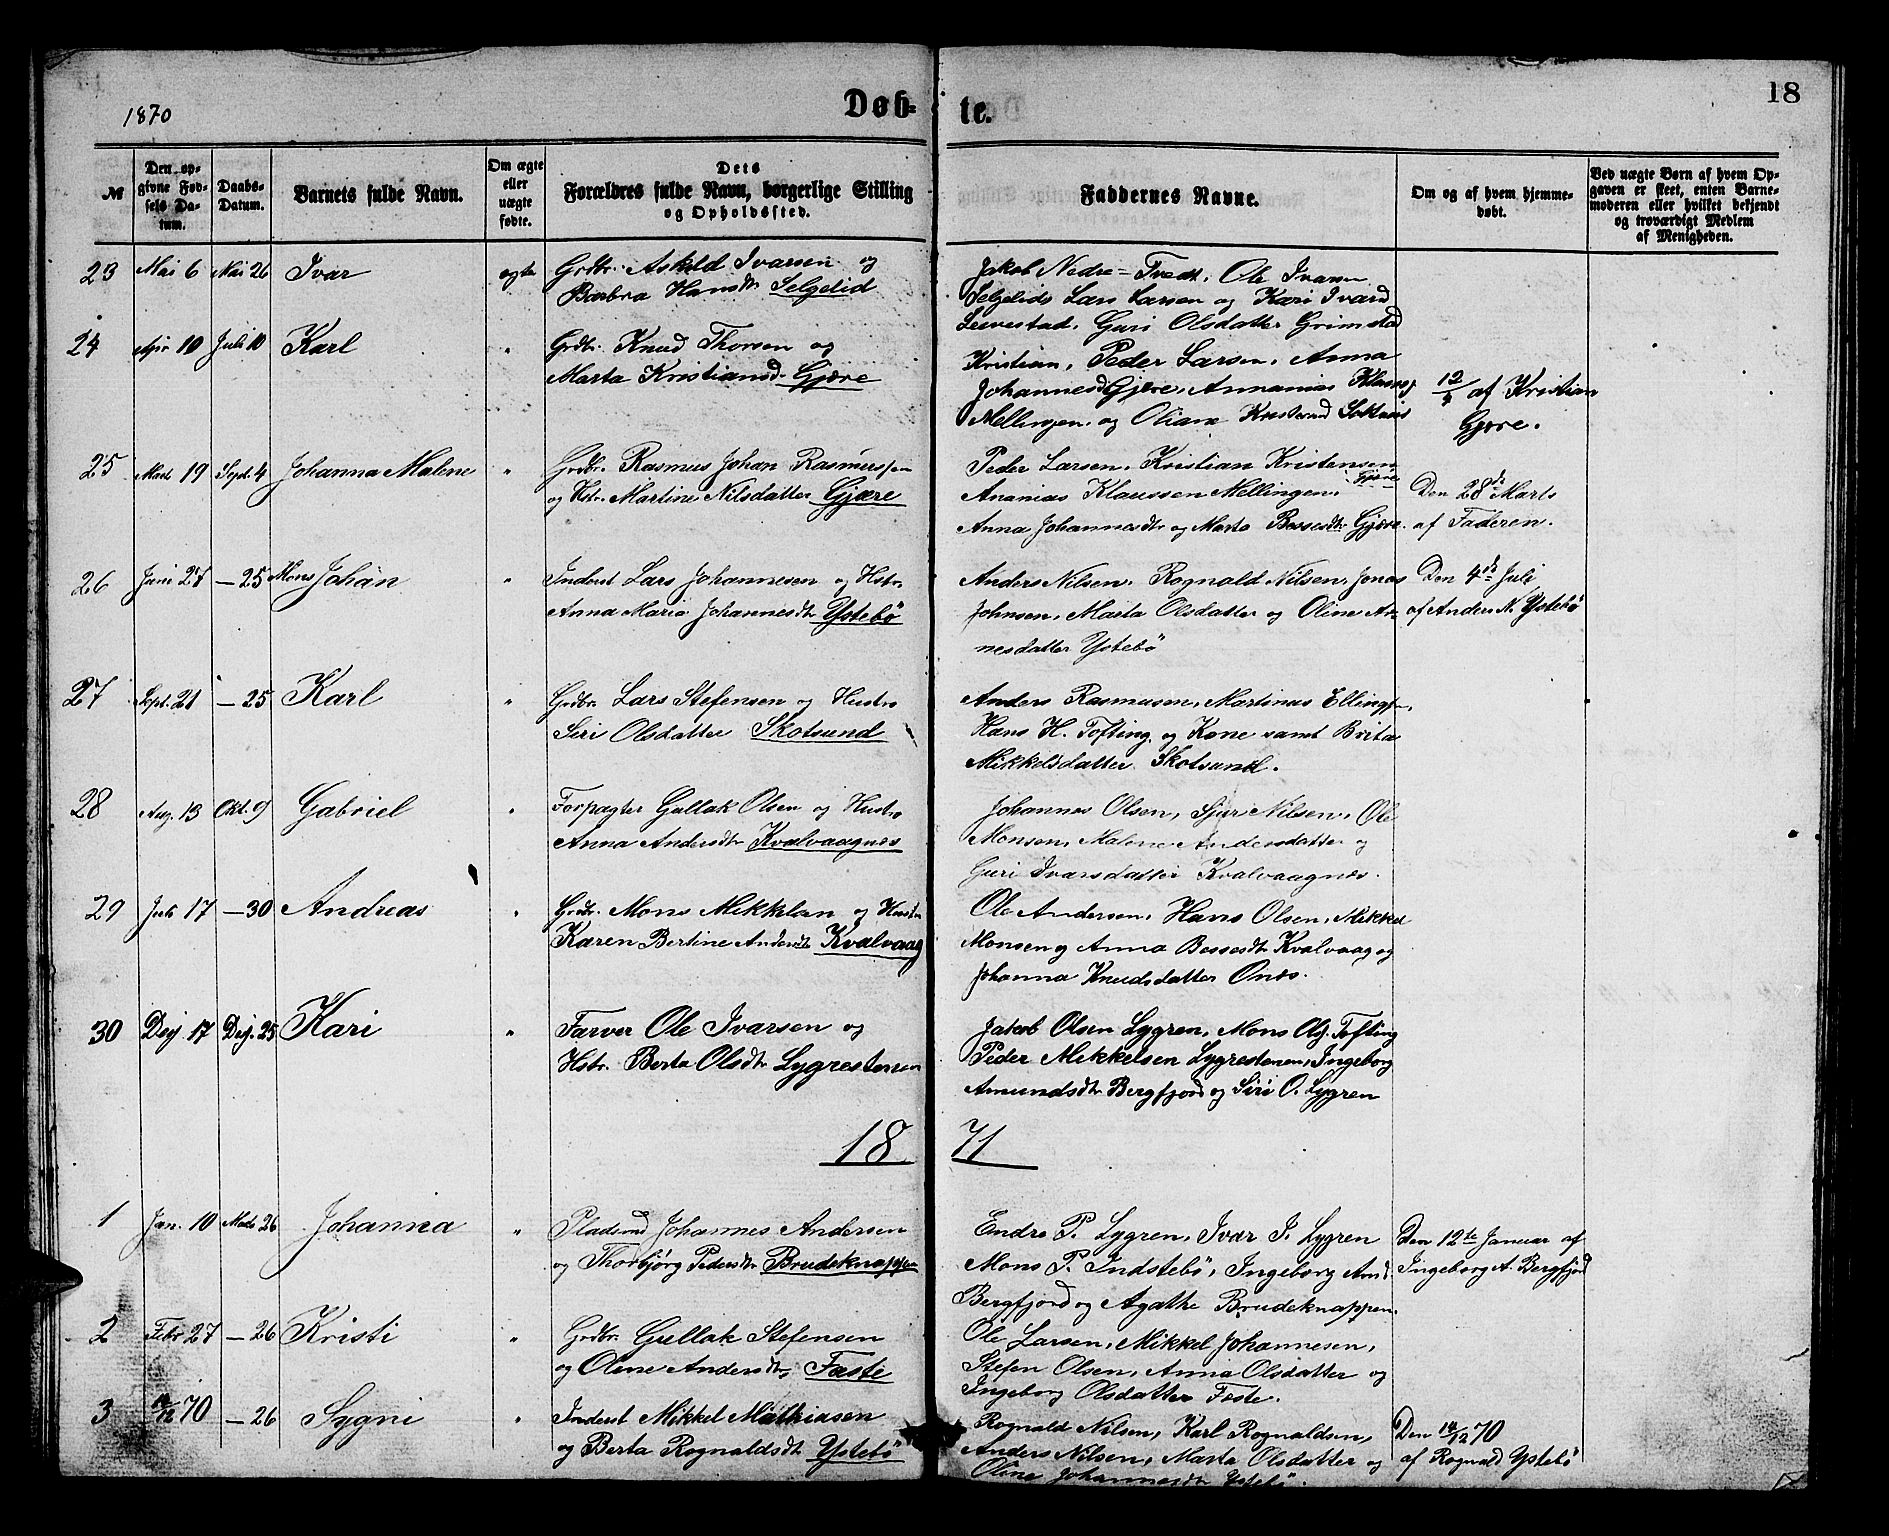 1870
Døb-te.
18
№
Den op-
givne Fød-
sels Da-
tum.
Daabs-
Datum.
Barnets fulde Navn.
Om ægte
eller
uægte
fødte.
Dets
Forældres fulde Navn, borgerlige Stilling
og Opholdssted.
Faddernes Navne.
Om og af hvem hjemme-
døbt.
Ved uægte Børn af hvem Op-
gaven er skeet, enten Barne-
moderen eller hvilket bekjendt
og troværdigt Medlem
af Menigheden.
23 Mai 6 Mai 26 Ivar ægte Grdbr. Askild Ivarsen og
Barbra Hansdtr Selgelid
Jakob Nedre-Tvedt, Ole Ivarsen
Selgelid, Lars Larsen og Kari Ivarsd
Leevestad, Guri Olsdatter Grimstad
24 Apr 10 Juli 10 Karl " Grdbr. Knud Thorsen og
Marta Kristiansd. Gjære
Kristian, Peder Larsen, Anna
Johannesd Gjære, Annanias Klauss
Mellingen og Oliane
12/4 af Kristian
Gjøre.
25 Marts 19 Sept. 4 Johanna Malene " Grdbr. Rasmus Johan Rasmussen
og Hstr. Martine Nilsdatter Gjære
Peder Larsen, Kristian Kristensen
Gjøre
Ananias Klaussen Mellingen,
Anna Johannesdtr og Marta Bessesdtr Gjære.
Den 28de Marts
af Faderen.
26 Juni 27 — 25 Mons Johan " Inderst Lars Johannesen og Hstr.
Anna Maria Johannesdtr Ystebö
Anders Nilsen, Rognald Nilsen, Jonas
Johnsen, Marta Olsdatter og Oline An-
nesdatter Ystebö
Den 4de Juli
af Anders N. Ystebö
27 Sept. 21 — 25 Karl " Grdbr. Lars Stefensen og Hustro
Siri Olsdatter Skotsund
Anders Rasmusen, Martinus Ellings.,
Hans H. Tofting og Kone samt Brita
Mikkelsdatter Skotsund.
28 Aug. 13 Okt. 9 Gabriel " Forpagter Gullak Olsen og Hustro
Anna Andersdtr Kvalvaagnes
Johannes Olsen, Sjur Nilsen, Ole
Monsen, Malene Andersdatter og
Guri Ivarsdatter Kvalvaagnes.
29 Juli 17 — 30 Andreas " Grdbr. Mons Mikkelsen og Hustro
Karen Bertine Andersdtr Kvalvaag
Ole Andersen, Hans Olsen, Mikkel
Monsen og Anna Bessesdtr Kvalvaag og
Johanna Knudsdatter Ones.
30 Desj 17 Desj. 25 Kari " Farver Ole Ivarsen og
Hstr. Berta Olsdtr Lygrestenen
Jakob Olsen Lygren, Mons Ols. Tofting
Peder Mikkelsen Lygrestenen, Ingeborg
Amundsdtr Bergfjord og Siri O. Lygren
1871
1 Jan. 10 Marts 26 Johanna " Pladsmd Johannes Andersen
og Thorbjörg Pedersdtr Brudeknappen
Endre P. Lygren, Ivar I. Lygren
Mons P. Indstebö, Ingeborg Amd.
Bergfjord og Agathe Brudeknappen.
Den 12te Januar af
Ingeborg A. Bergfjord
2 Febr 27 — 26 Kristi " Grdbr. Gullak Stefensen
og Oline Andersdtr, Fæste
Ole Larsen, Mikkel Johannesen,
Stefen Olsen, Anna Olsdatter og
Ingeborg Olsdatter Feste.
3 70 — 26 Sygni " Inderst Mikkel Mathiasen
og Berta Rognaldsdtr Ystebö
Rognald Nilsen, Karl Rognaldsen,
Anders Nilsen, Marta Olsdatter og
Oline Johannesdtr Ystebö.
Den 70
af Rognald Ystebö